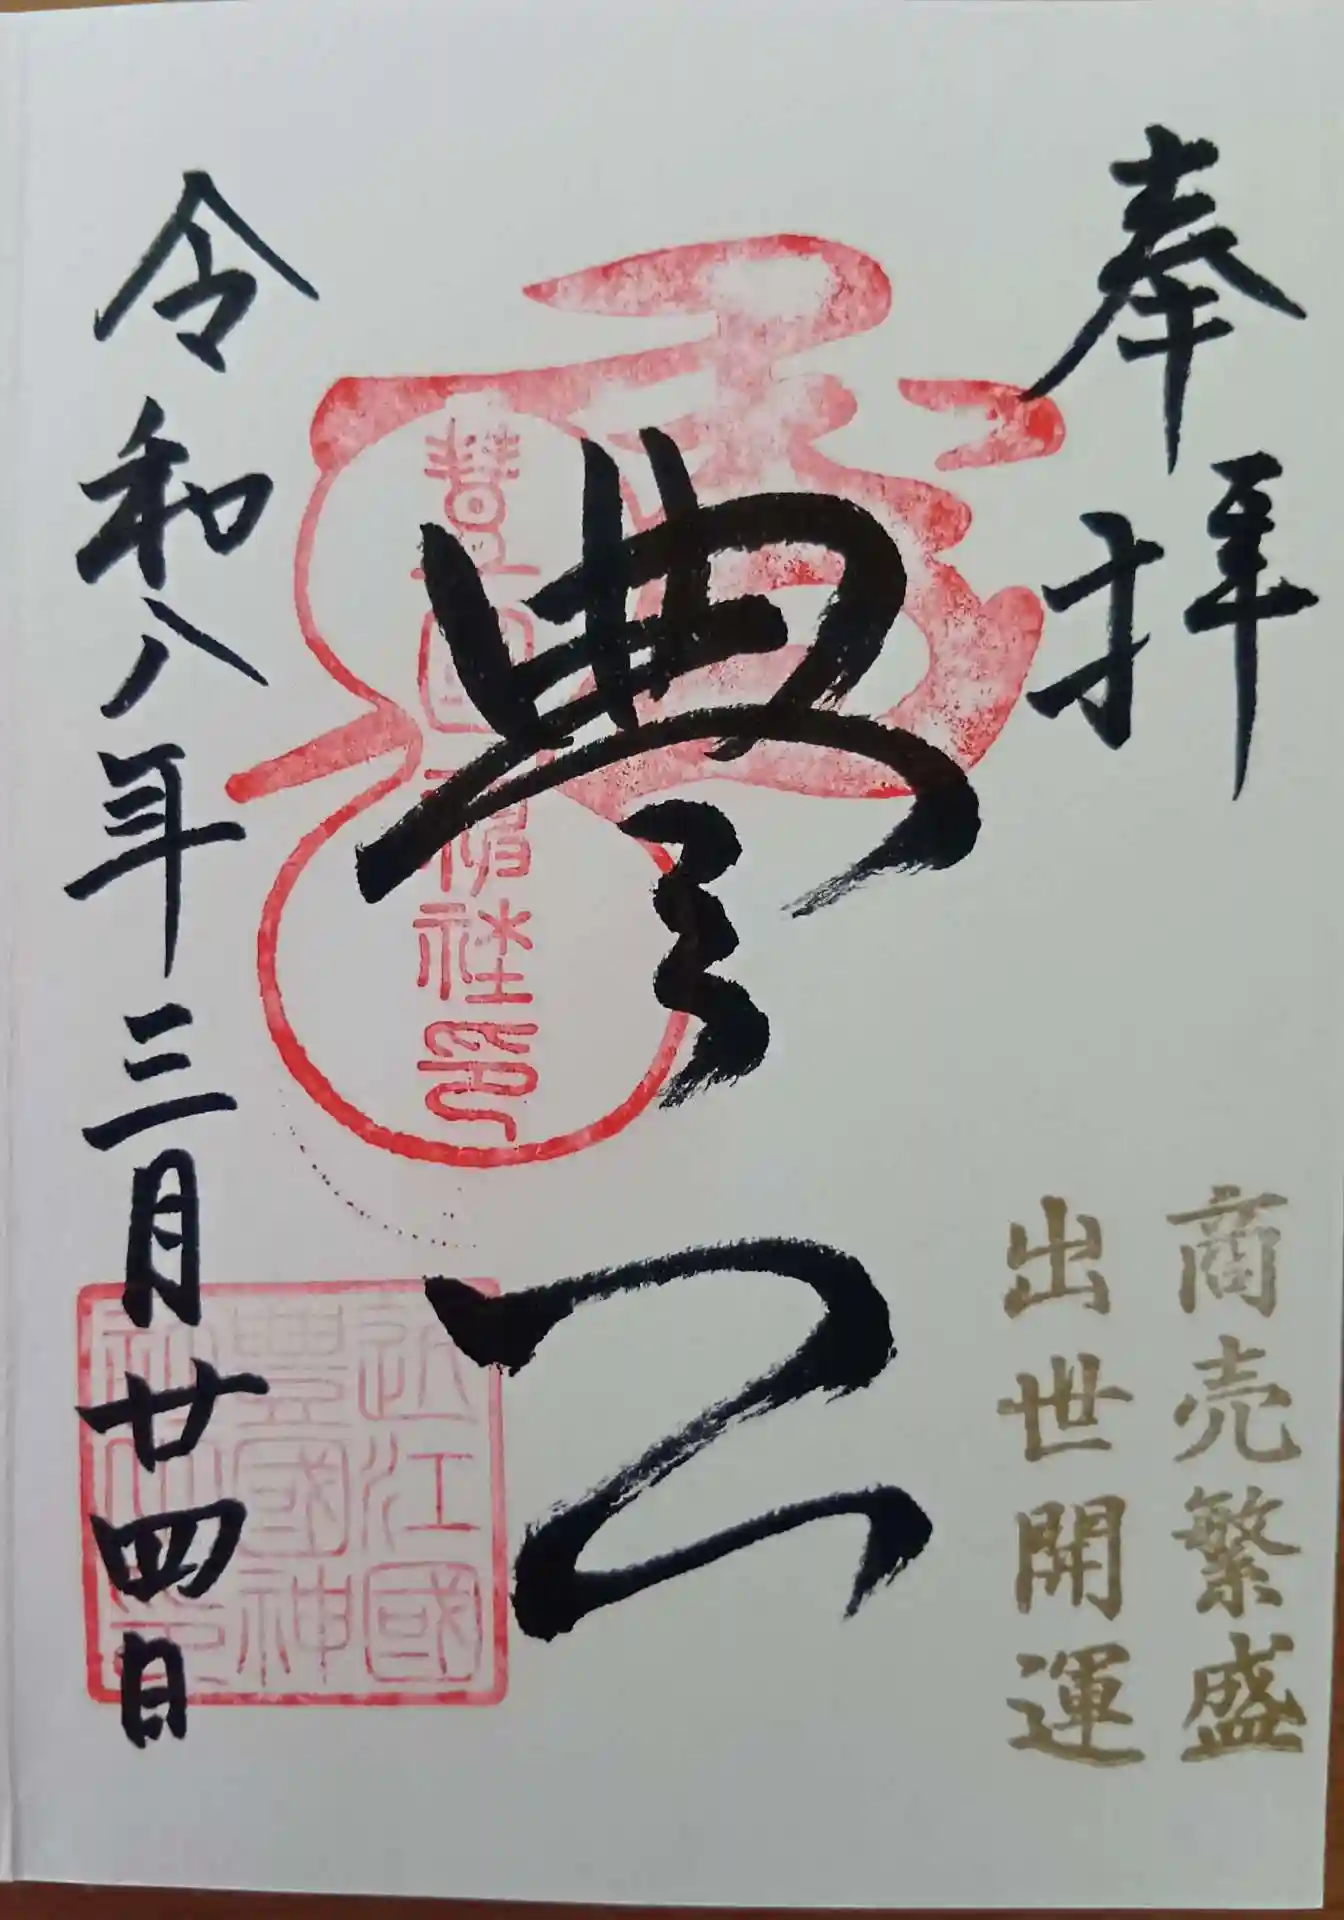 奉拝
商売繁盛
出世開運
豊公
豊国神社印
近江國
豊國神
社之印
令和八年三月廿四日